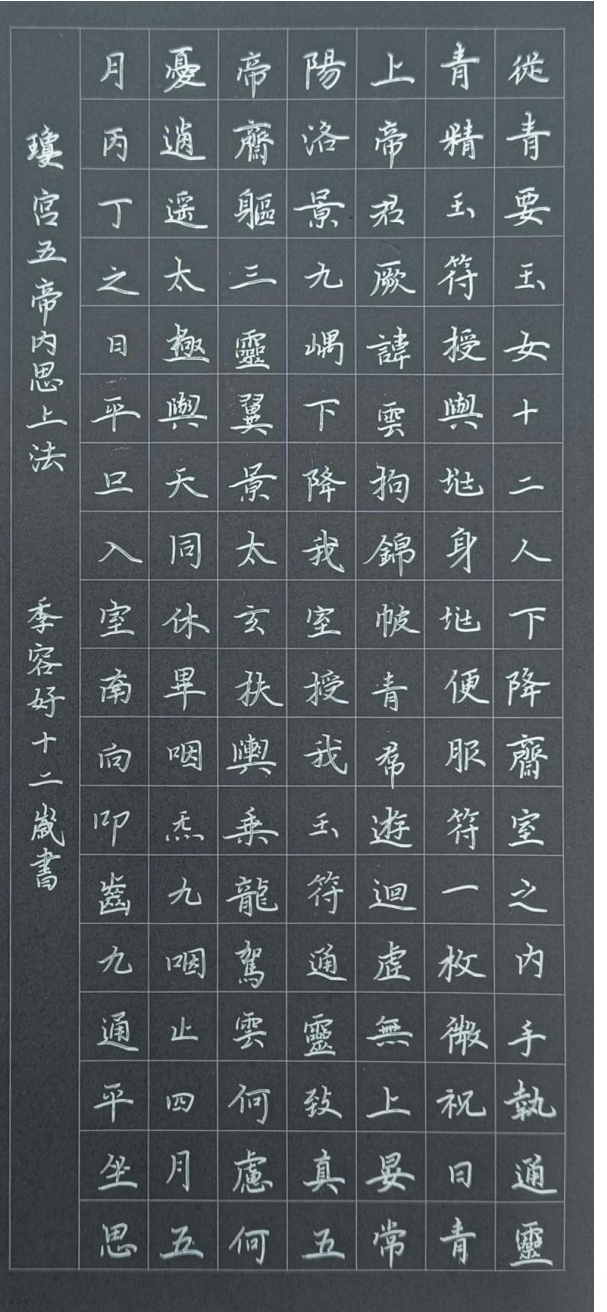 從青要玉女十二人下降齋室之內手執通靈
青精玉符授與兆身兆便服符一枚微祝曰青
上帝君厥諱雲拘錦帔青帬遊迴虛無上晏常
陽洛景九嵎下降我室授我玉符通靈致真五
帝齋軀三靈翼景太玄扶輿乘龍駕雲何慮何
憂遨遥太極與天同休畢咽炁九咽止四月五
月丙丁之日平旦入室南向叩齒九通平坐思
瓊宮五帝內思上法 季容好十二歲書